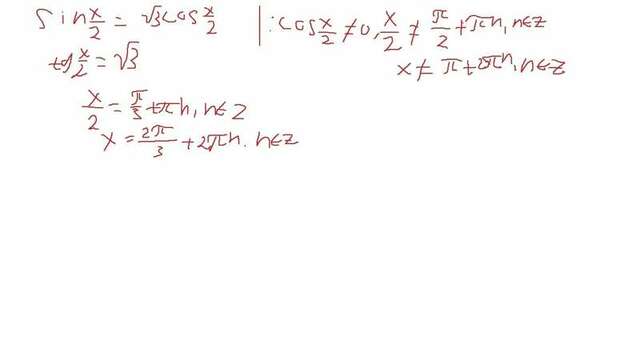 sin x/2 = √3 cos x/2 | : cos x/2 ≠ 0, x/2 ≠ π/2 + πn, n∈Z
tg x/2 = √3
x ≠ π + 2πn, n∈Z
x/2 = π/3 + πn, n∈Z
x = 2π/3 + 2πn. n∈Z